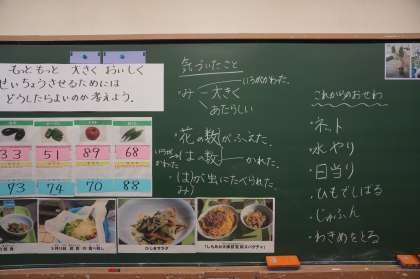 もっと もっと 大きく おいしく
せいちょうさせるためには
どうしたらよいのか考えよう。
33 51 89 68
93 74 70 88
気づいたこと
いろがかわった。
・み 大きく
あたらしい
・花の数がふえた。
はの数 かれた。
(は)が虫にたべられた。
み)
いろがかわった
ひじきサラダ
これからのおせわ
・ネット
・水やり
・日当り
・ひもでしばる
・じゅふん
・わきめをとる